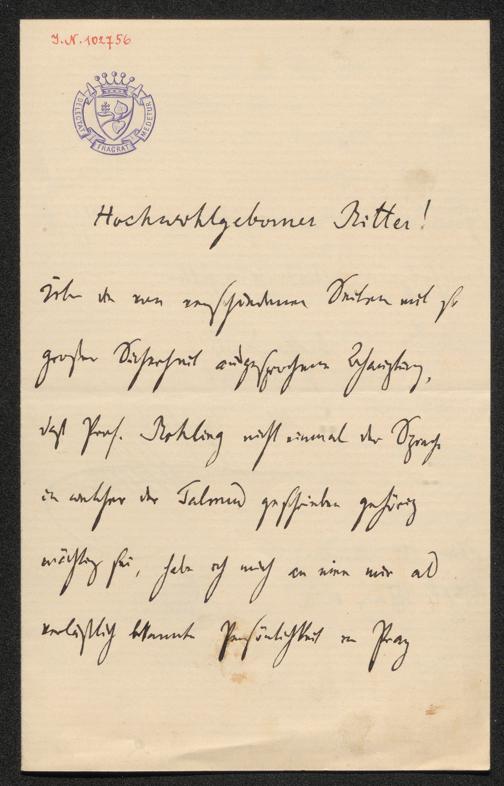 J.N. 102756
DELECTAT FRAGRAT MEDETUR
Hochwohlgeborner Ritter!
Über die von verschiedenen Seiten mit so
großer Sicherheit ausgesprochene Behauptung,
daß Prof. Rohling nicht einmal der Sprache
in welcher der Talmud geschrieben gehörig
mächtig sei, habe ich mich an eine mir als
verläßlich bekannte Persönlichkeit in Prag